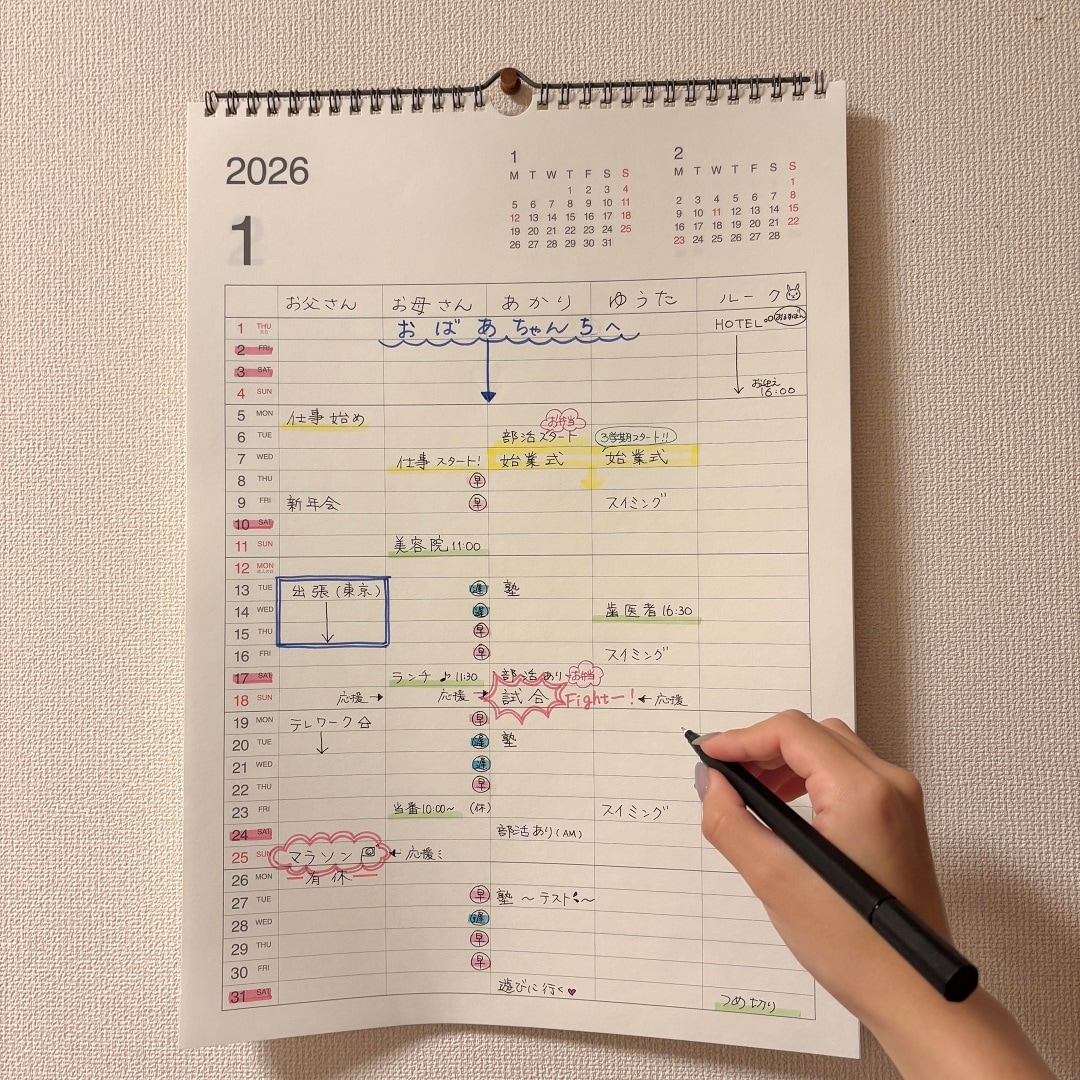 2026
1
1
M T W T F S S
1 2 3 4
5 6 7 8 9 10 11
12 13 14 15 16 17 18
19 20 21 22 23 24 25
26 27 28 29 30 31
2
M T W T F S S
1
2 3 4 5 6 7 8
9 10 11 12 13 14 15
16 17 18 19 20 21 22
23 24 25 26 27 28
お父さん お母さん あかり ゆうた ルーク
1 THU おばあちゃんちへ HOTEL
2 FRI
3 SAT
4 SUN お迎え 16:00
5 MON 仕事始め
6 TUE 部活スタート お弁当 3学期スタート!!
7 WED 仕事スタート! 始業式 始業式
8 THU 早
9 FRI 新年会 早 スイミング
10 SAT
11 SUN 美容院 11:00
12 MON 成人の日
13 TUE 出張(東京) 遅 塾
14 WED 遅 歯医者 16:30
15 THU 早
16 FRI 早 スイミング
17 SAT ランチ♪ 11:30 部活あり お弁当
18 SUN 応援→ 応援→ 試合 Fightー! ←応援
19 MON テレワーク 早
20 TUE 遅 塾
21 WED 遅
22 THU 早
23 FRI 当番10:00~ (休) スイミング
24 SAT 部活あり(AM)
25 SUN マラソン ←応援
26 MON 有休
27 TUE 早 塾 ~テスト~
28 WED 遅
29 THU 早
30 FRI 早
31 SAT 遊びに行く♥ つめ切り